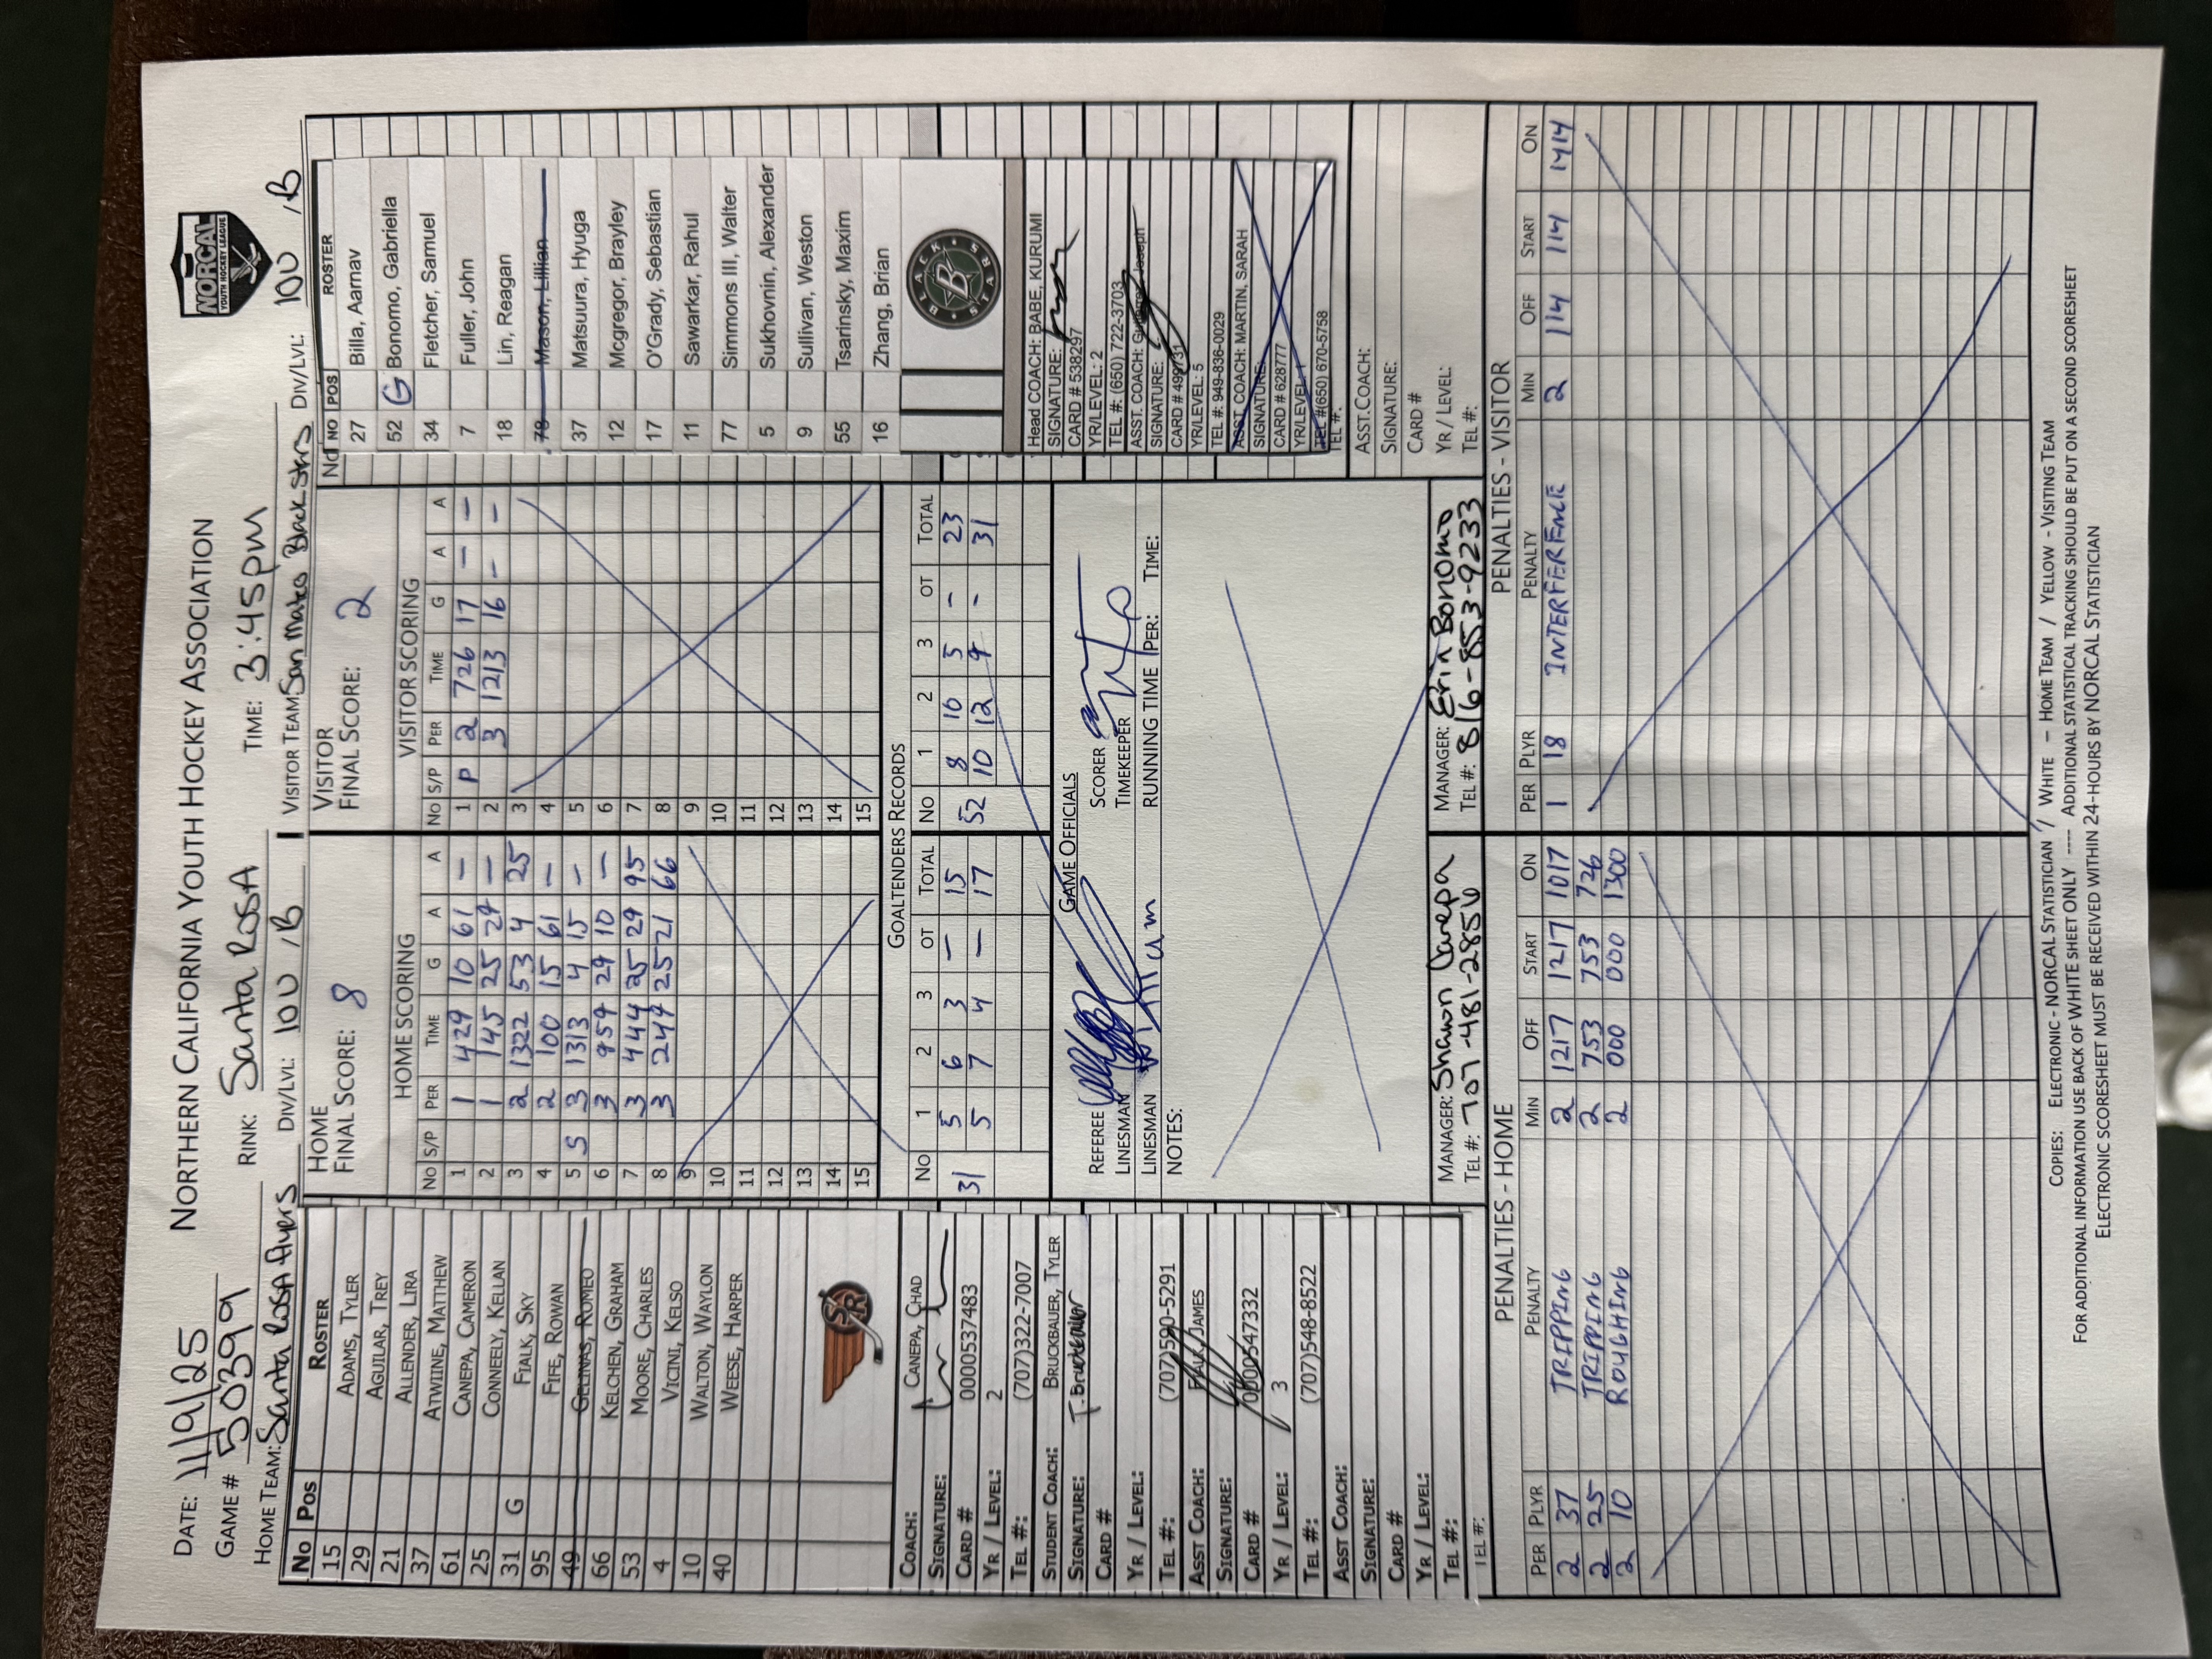 DATE: 11/9/25 NORTHERN CALIFORNIA YOUTH HOCKEY ASSOCIATION
NORCAL
YOUTH HOCKEY LEAGUE
GAME # 50399 RINK: Santa Rosa TIME: 3:45pm
HOME TEAM: Santa Rosa Flyers DIV/LVL: 10U / B VISITOR TEAM: San Mateo Black Stars DIV/LVL: 10U / B
No Pos ROSTER
15 ADAMS, TYLER
29 AGUILAR, TREY
21 ALLENDER, LIRA
37 ATWINE, MATTHEW
61 CANEPA, CAMERON
25 CONNEELY, KELLAN
31 G FIALK, SKY
95 FIFE, ROWAN
49 GELINAS, ROMEO
66 KELCHEN, GRAHAM
53 MOORE, CHARLES
4 VICINI, KELSO
10 WALTON, WAYLON
40 WEESE, HARPER
SR
COACH: CANEPA, CHAD
SIGNATURE:
CARD # 0000537483
YR / LEVEL: 2
TEL #: (707)322-7007
STUDENT COACH: BRUCKBAUER, TYLER
SIGNATURE: T. Bruckbauer
CARD #
YR / LEVEL:
TEL #: (707)590-5291
ASST COACH: FIALK, JAMES
SIGNATURE:
CARD # 0000547332
YR / LEVEL: 3
TEL #: (707)548-8522
ASST COACH:
SIGNATURE:
CARD #
YR / LEVEL:
TEL #:
TEL #:
HOME
FINAL SCORE: 8
HOME SCORING
No S/P PER TIME G A A
1 1 429 10 61 —
2 1 145 25 29 —
3 2 1322 53 4 25
4 2 100 15 61 —
5 S 3 1313 4 15 —
6 3 959 29 10 —
7 3 444 25 29 95
8 3 249 25 21 66
9
10
11
12
13
14
15
VISITOR
FINAL SCORE: 2
VISITOR SCORING
No S/P PER TIME G A A
1 P 2 726 17 — —
2 3 1213 16 — —
3
4
5
6
7
8
9
10
11
12
13
14
15
GOALTENDERS RECORDS
No 1 2 3 OT TOTAL No 1 2 3 OT TOTAL
5 6 3 — 15 8 10 5 - 23
31 5 7 4 — 17 52 10 12 9 - 31
GAME OFFICIALS
REFEREE SCORER
LINESMAN TIMEKEEPER
LINESMAN RUNNING TIME PER: TIME:
NOTES:
MANAGER: Shawn Canepa
TEL #: 707-481-2850
MANAGER: Erin Bonomo
TEL #: 816-853-9233
No
NO POS ROSTER
27 Billa, Aarnav
52 G Bonomo, Gabriella
34 Fletcher, Samuel
7 Fuller, John
18 Lin, Reagan
78 Mason, Lillian
37 Matsuura, Hyuga
12 Mcgregor, Brayley
17 O'Grady, Sebastian
11 Sawarkar, Rahul
77 Simmons III, Walter
5 Sukhovnin, Alexander
9 Sullivan, Weston
55 Tsarinsky, Maxim
16 Zhang, Brian
BLACK STARS
B
Head COACH: BABE, KURUMI
SIGNATURE:
CARD # 538297
YR/LEVEL: 2
TEL #: (650) 722-3703
ASST. COACH: Joseph
SIGNATURE:
CARD #
YR/LEVEL: 5
TEL #: 949-836-0029
ASST. COACH: MARTIN, SARAH
SIGNATURE:
CARD # 628777
YR/LEVEL: 1
TEL #(650) 670-5758
TEL #:
ASST.COACH:
SIGNATURE:
CARD #
YR / LEVEL:
TEL #:
PENALTIES - HOME
PER PLYR PENALTY MIN OFF START ON
2 37 TRIPPING 2 1217 1217 1017
2 25 TRIPPING 2 753 753 726
2 10 ROUGHING 2 000 000 1300
PENALTIES - VISITOR
PER PLYR PENALTY MIN OFF START ON
1 18 INTERFERENCE 2 114 114 1414
COPIES: ELECTRONIC - NORCAL STATISTICIAN / WHITE – HOME TEAM / YELLOW - VISITING TEAM
FOR ADDITIONAL INFORMATION USE BACK OF WHITE SHEET ONLY ---- ADDITIONAL STATISTICAL TRACKING SHOULD BE PUT ON A SECOND SCORESHEET
ELECTRONIC SCORESHEET MUST BE RECEIVED WITHIN 24-HOURS BY NORCAL STATISTICIAN